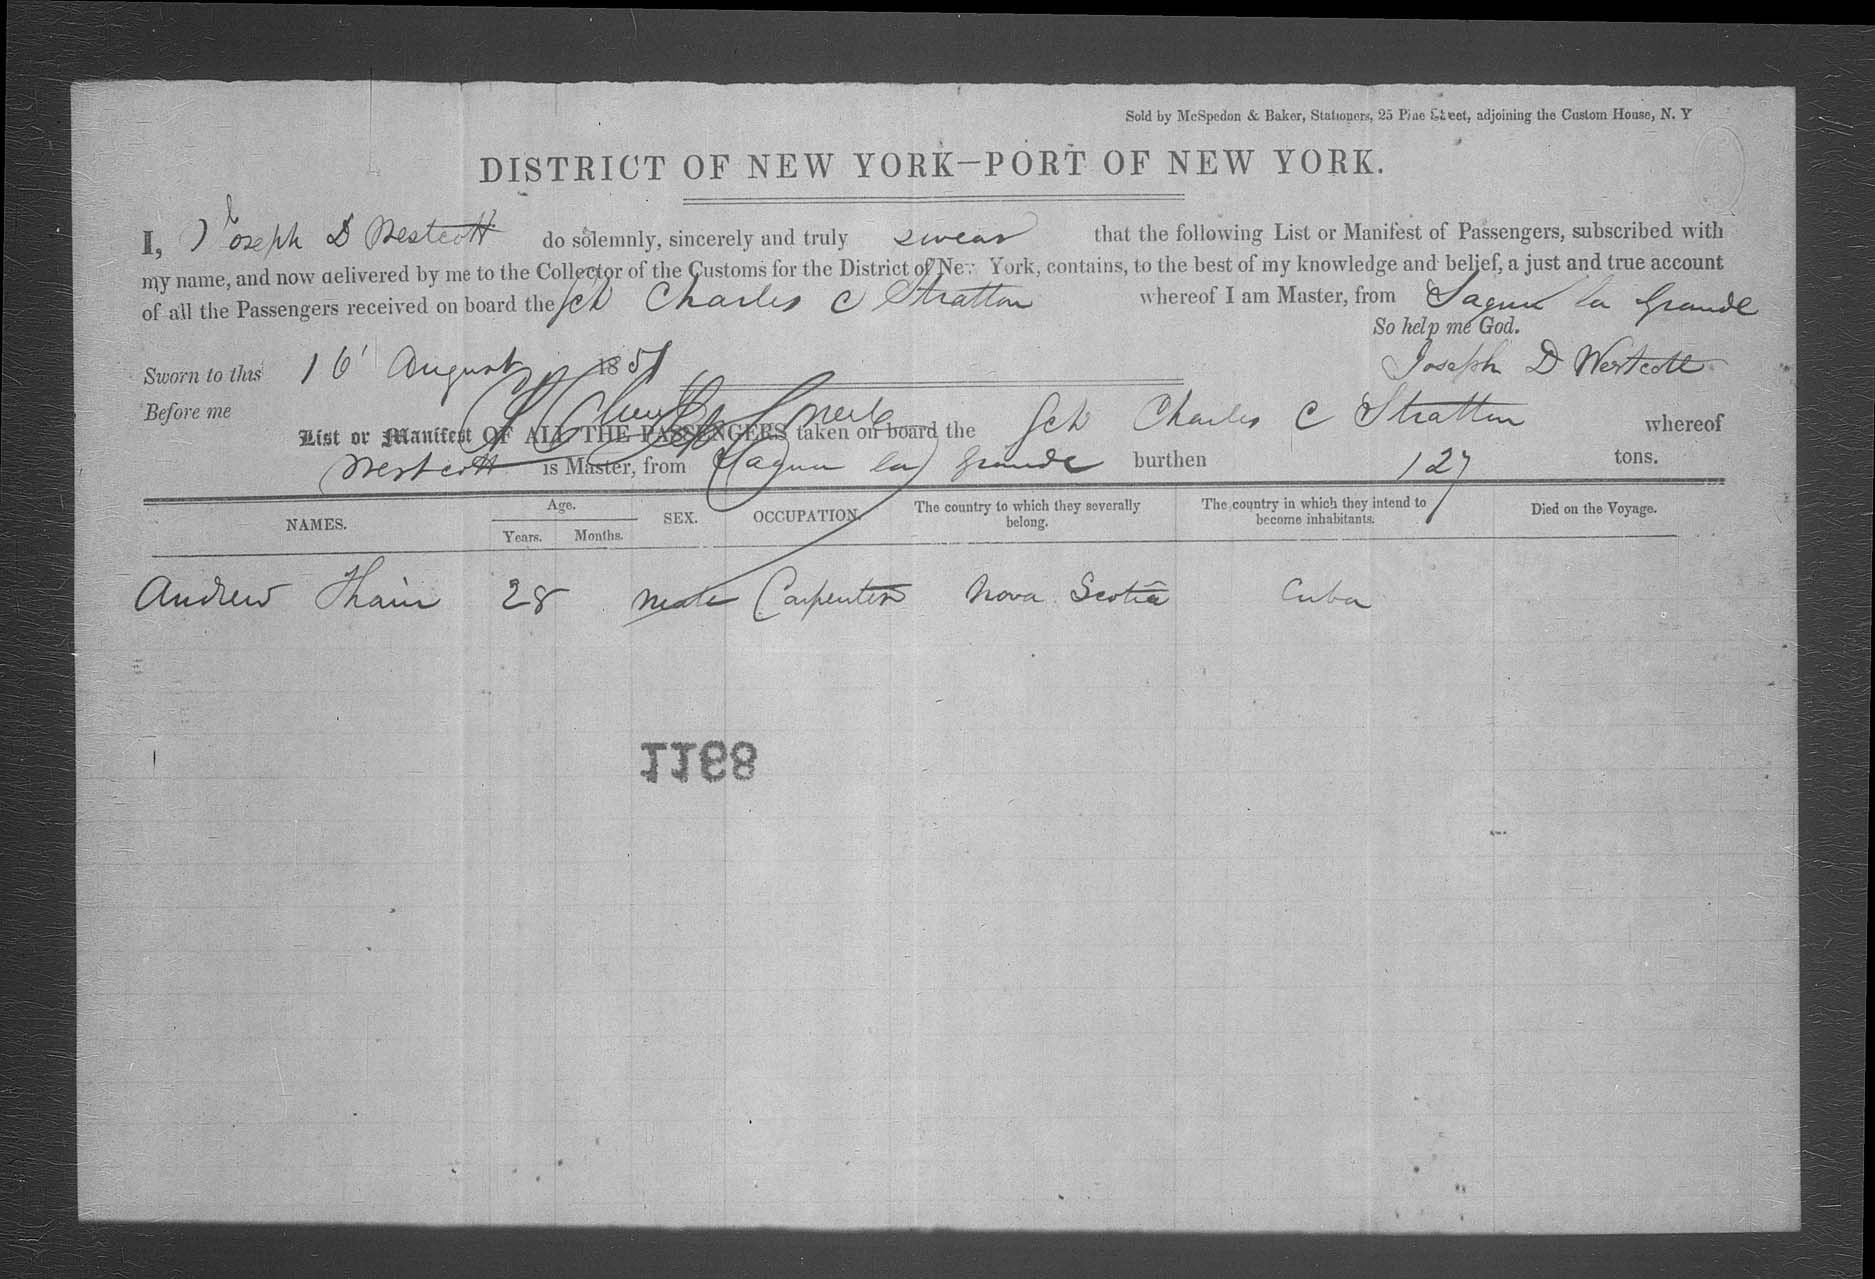 Sold by McSpedon & Baker, Stationers, 25 Pine Street, adjoining the Custom House, N. Y
DISTRICT OF NEW YORK—PORT OF NEW YORK.
I, Joseph D Westcott do solemnly, sincerely and truly swear that the following List or Manifest of Passengers, subscribed with
my name, and now delivered by me to the Collector of the Customs for the District of New York, contains, to the best of my knowledge and belief, a just and true account
of all the Passengers received on board the Sch Charles C Stratton whereof I am Master, from Sagua la Grande
So help me God.
Sworn to this 16 August 1851 Joseph D Westcott
Before me
List or Manifest OF ALL THE PASSENGERS taken on board the Sch Charles C Stratton whereof
Westcott is Master, from Sagua la Grande burthen 127 tons.
NAMES. Age. Years. Months. SEX. OCCUPATION. The country to which they severally belong. The country in which they intend to become inhabitants. Died on the Voyage.
Andrew Thain 28 Male Carpenter Nova Scotia Cuba
1168